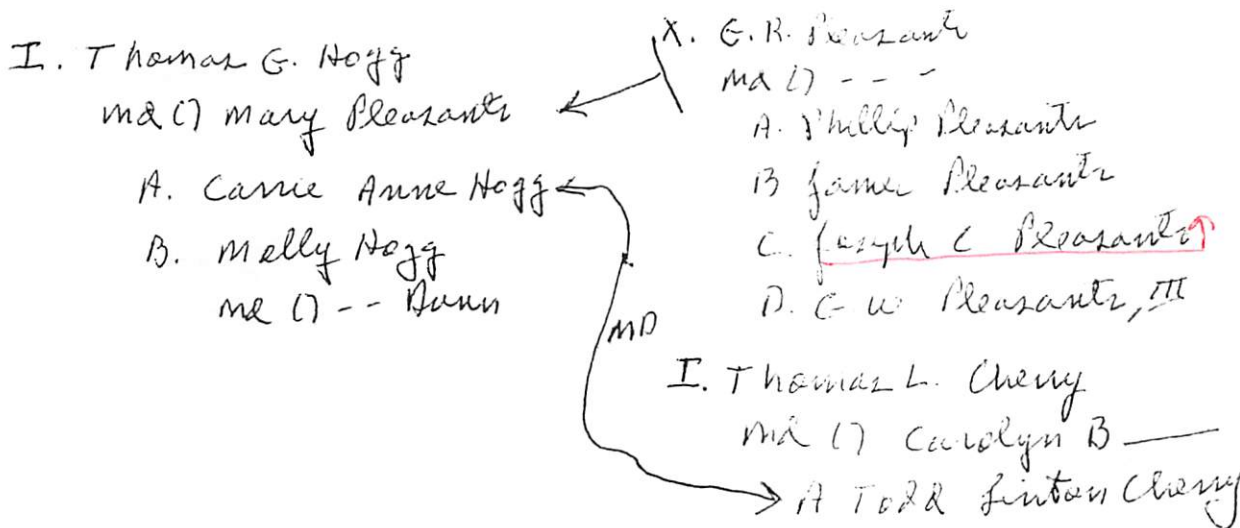 I. Thomas G. Hogg
md () Mary Pleasants
A. Carrie Anne Hogg
B. Molly Hogg
md () -- Dunn
X. G.R. Pleasants
md () - - -
A. Phillip Pleasants
B James Pleasants
C. Joseph C Pleasants
D. G W Pleasants, III
MD
I. Thomas L. Cherry
md () Carolyn B ——
A Todd Linton Cherry